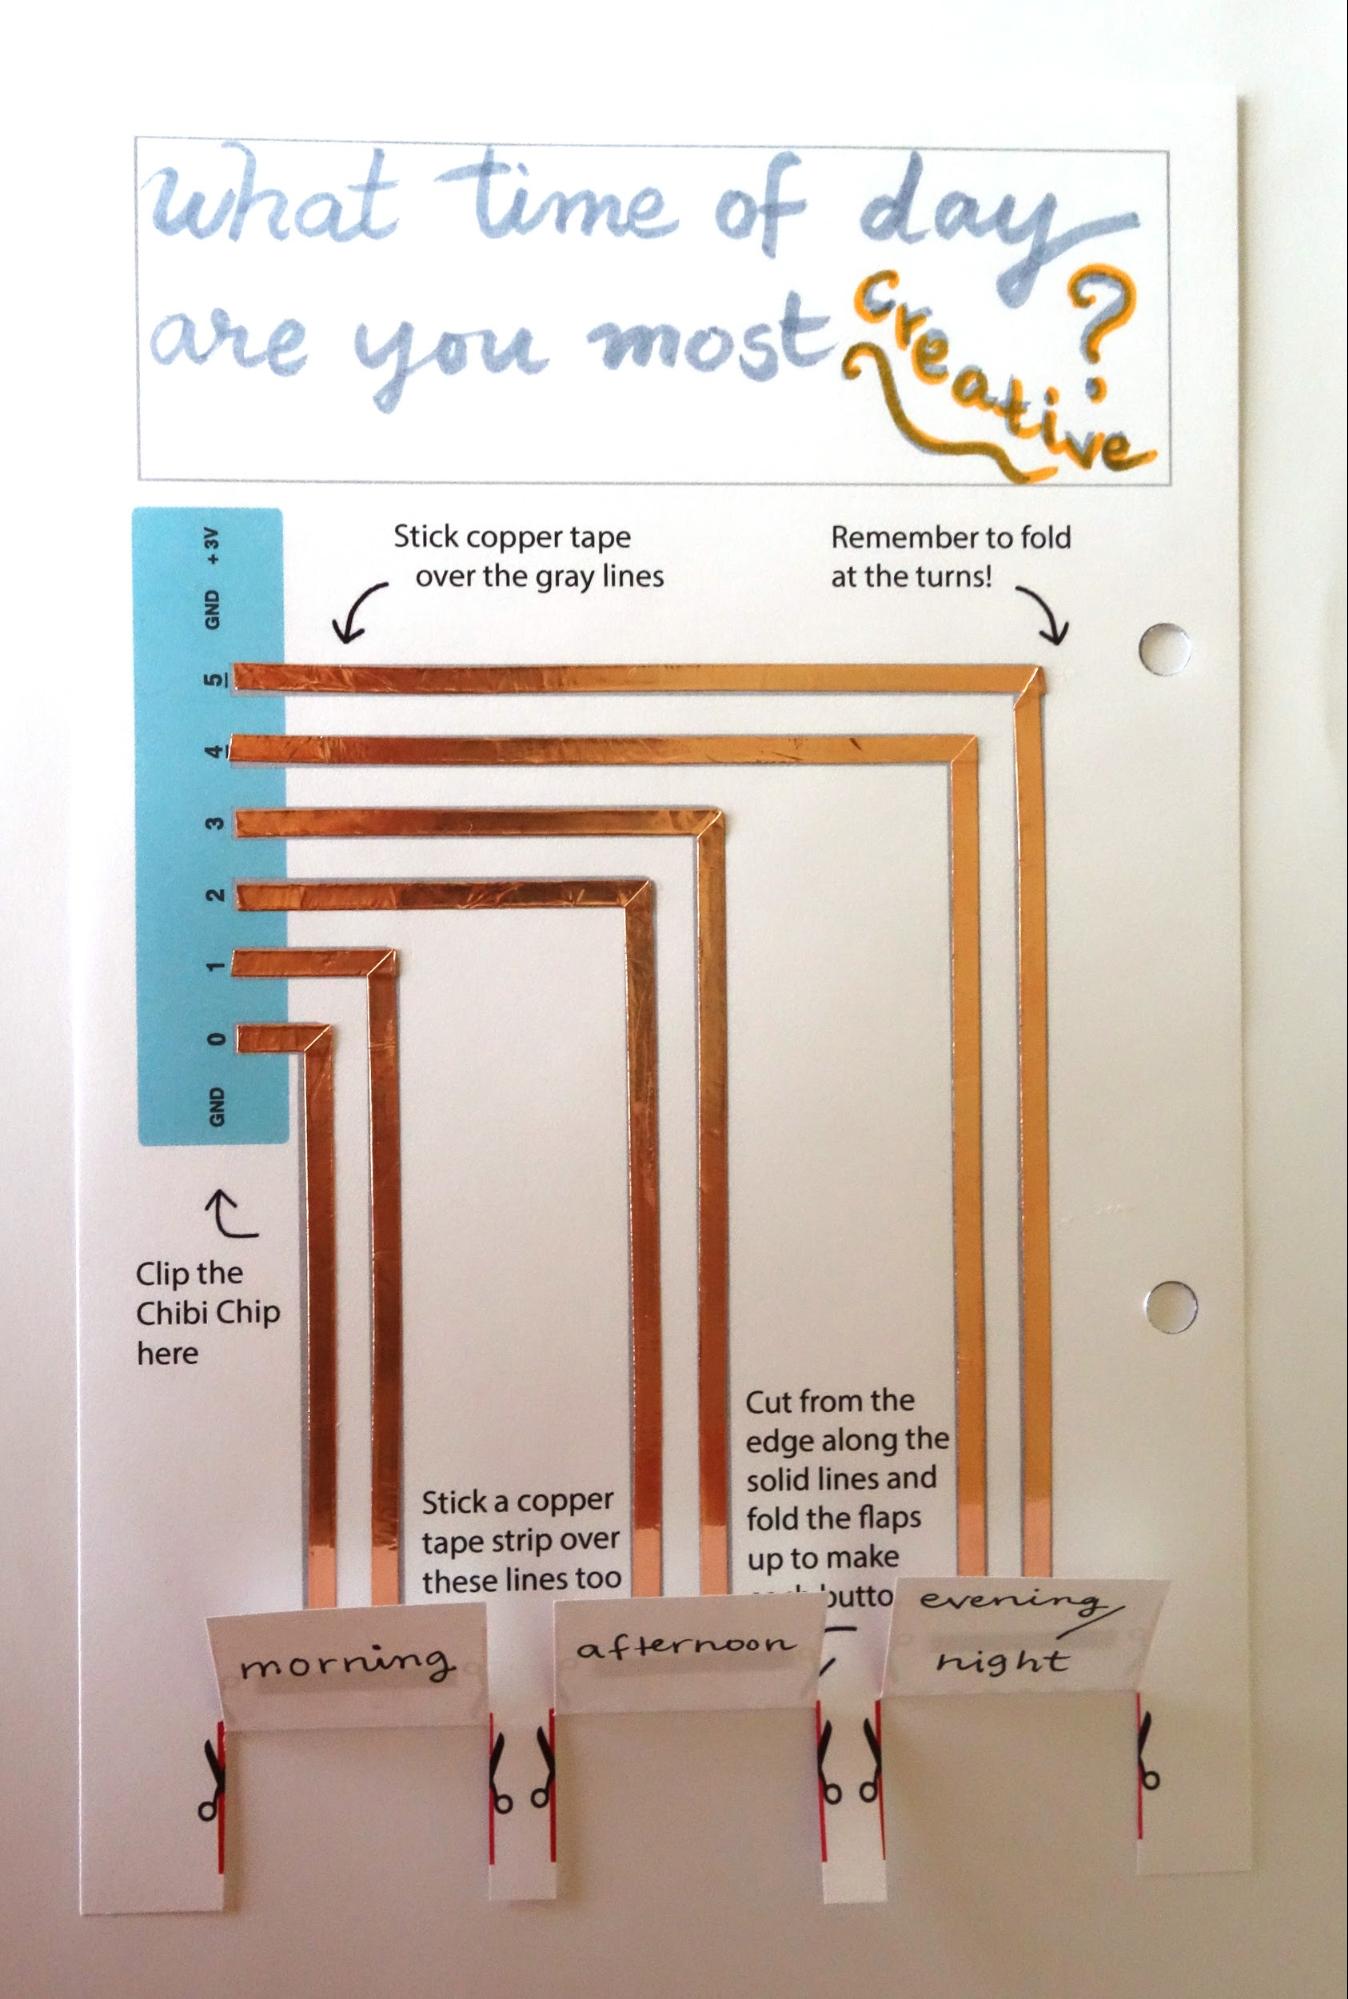 what time of day
are you most creative?
Stick copper tape
over the gray lines
Remember to fold
at the turns!
+ 3V
GND
5
4
3
2
1
0
GND
Clip the
Chibi Chip
here
Stick a copper
tape strip over
these lines too
Cut from the
edge along the
solid lines and
fold the flaps
up to make
morning
afternoon
evening/
night